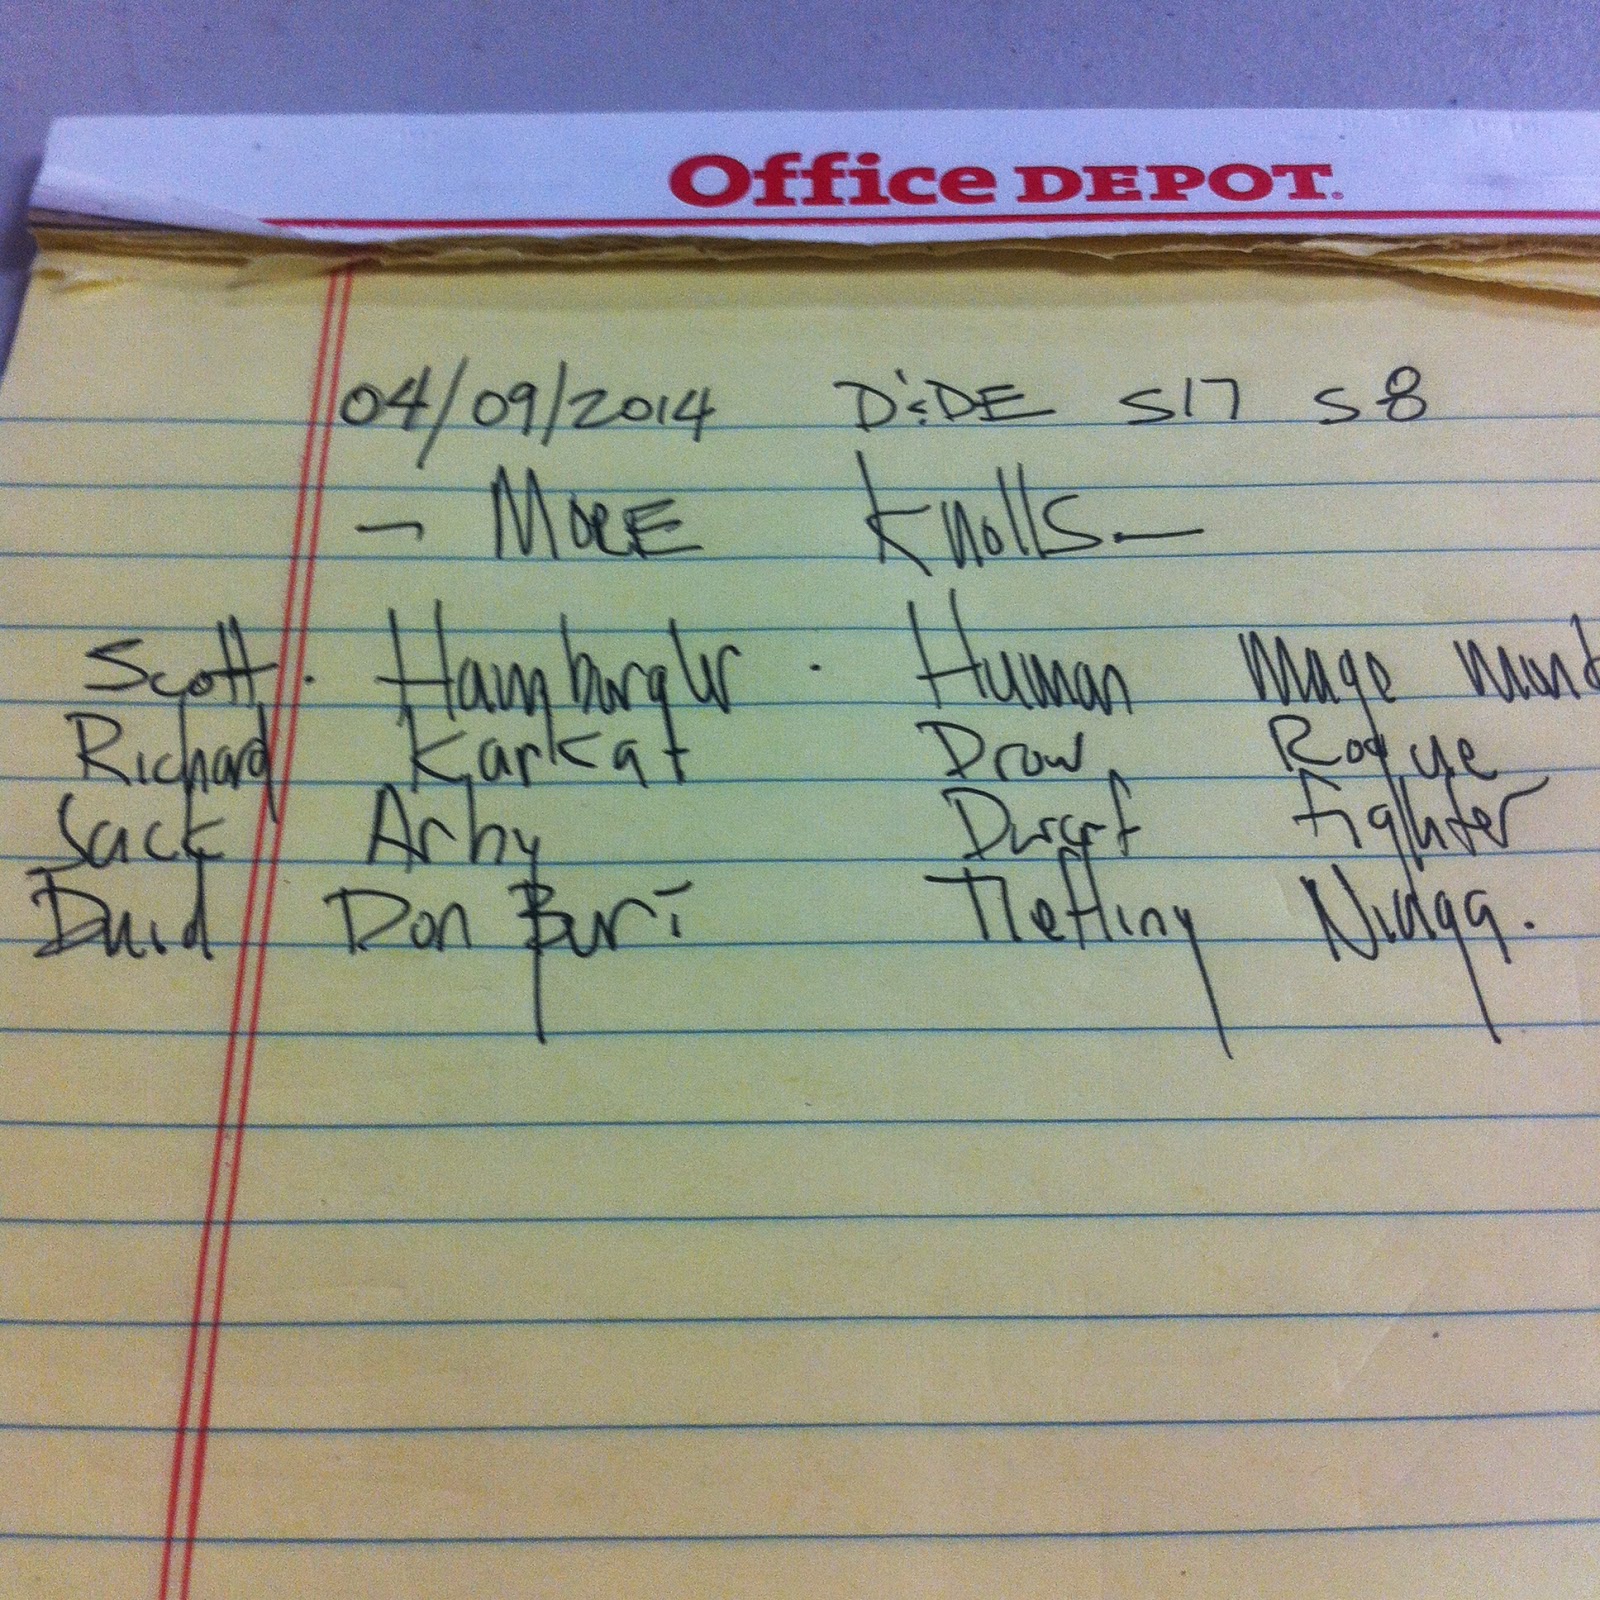 Office DEPOT.
04/09/2014 D&DE S17 S8
- MORE Knolls -
Scott. Hamburgler . Human Mage
Richard Karkat Drow Rogue
Jack Arby Dwarf Fighter
David Don Buri Tiefling Ninja.